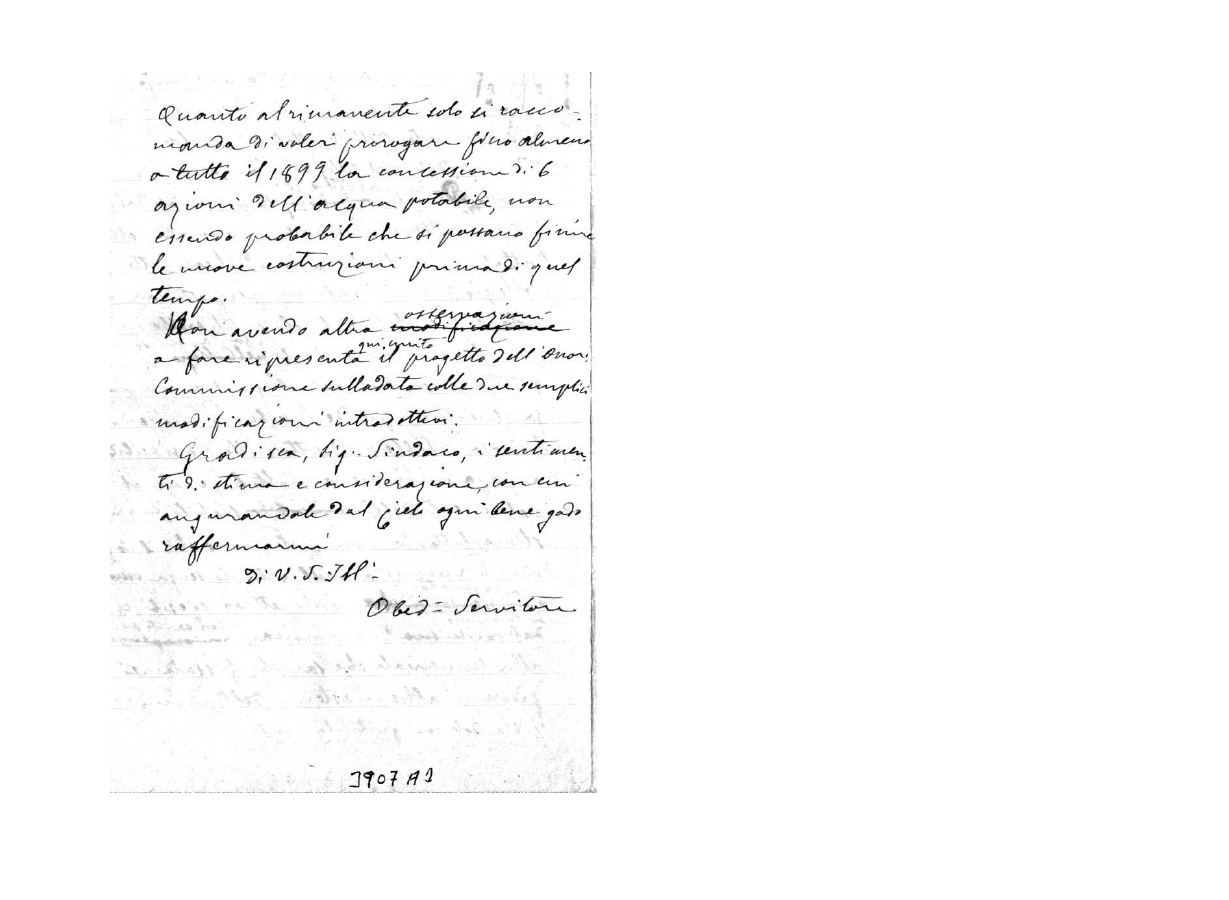 Quanto al rimanente solo si racco-
manda di voler prorogare fino almeno
a tutto il 1899 la concessione di 6
azioni dell'acqua potabile, non
essendo probabile che si possano finire
le nuove costruzioni prima di quel
tempo.
osservazioni
Non avendo altra modificazione
qui unito
a fare ripresenta il progetto dell'Onor.
Commissione sullodata colle due semplici
modificazioni introdottevi.
Gradisca, Sig. Sindaco, i sentimen-
ti di stima e considerazione, con cui
augurandole dal Cielo ogni bene godo
raffermarmi
Di V. S. Ill:
Obed= Servitore
3907 A 1